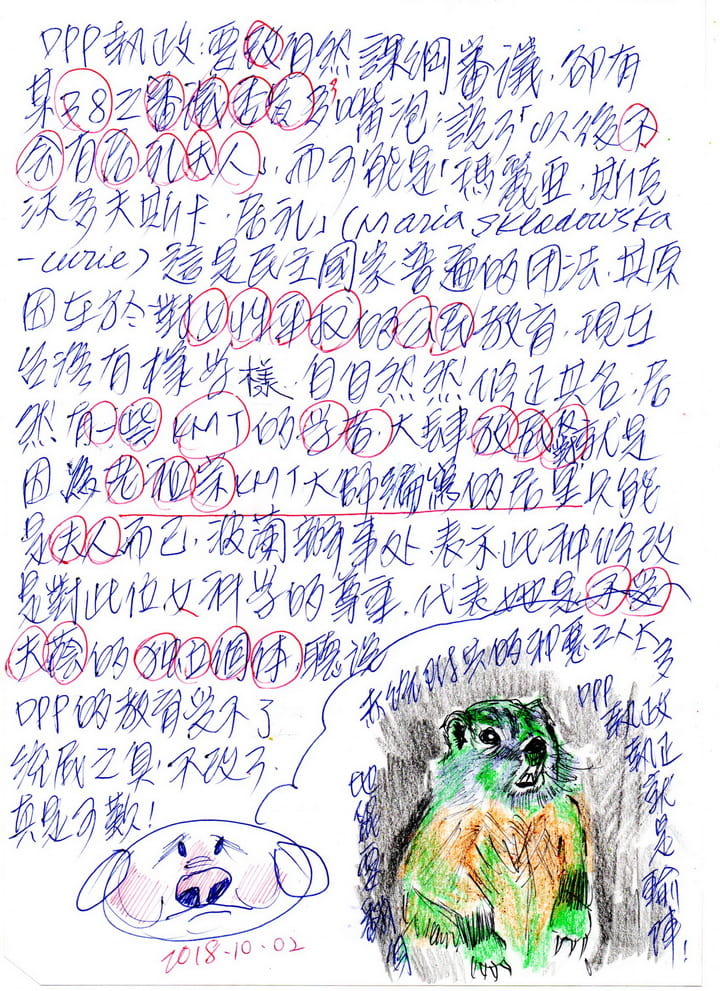 DPP執政:要改自然課綱審議,卻有
某38之審議委員多嘴泡:說了「以後不
會有居礼夫人」,而可能是「瑪麗亞.斯克
沃多夫斯卡.居礼」(Maria Skłodowska
-curie)這是民主國家普遍的用法,其原
因在於對女性平权的公民教育,現在
台灣有樣学樣,自自然然修正其名,居
然有一些KMT的学者,大肆放屁,就是
因為老祖宗KMT大師編寫的居里只能
是夫人而已,波蘭辦事处,表示此种修改
是對此位女科学的尊重,代表她是不受
夫蔭的独立個体,聽說
DPP的教育受不了
統派之臭,不改了.
真是可歎!
2018-10-02
的邪惡之人太多
DPP
執政
執正
就
是
輸
陣!